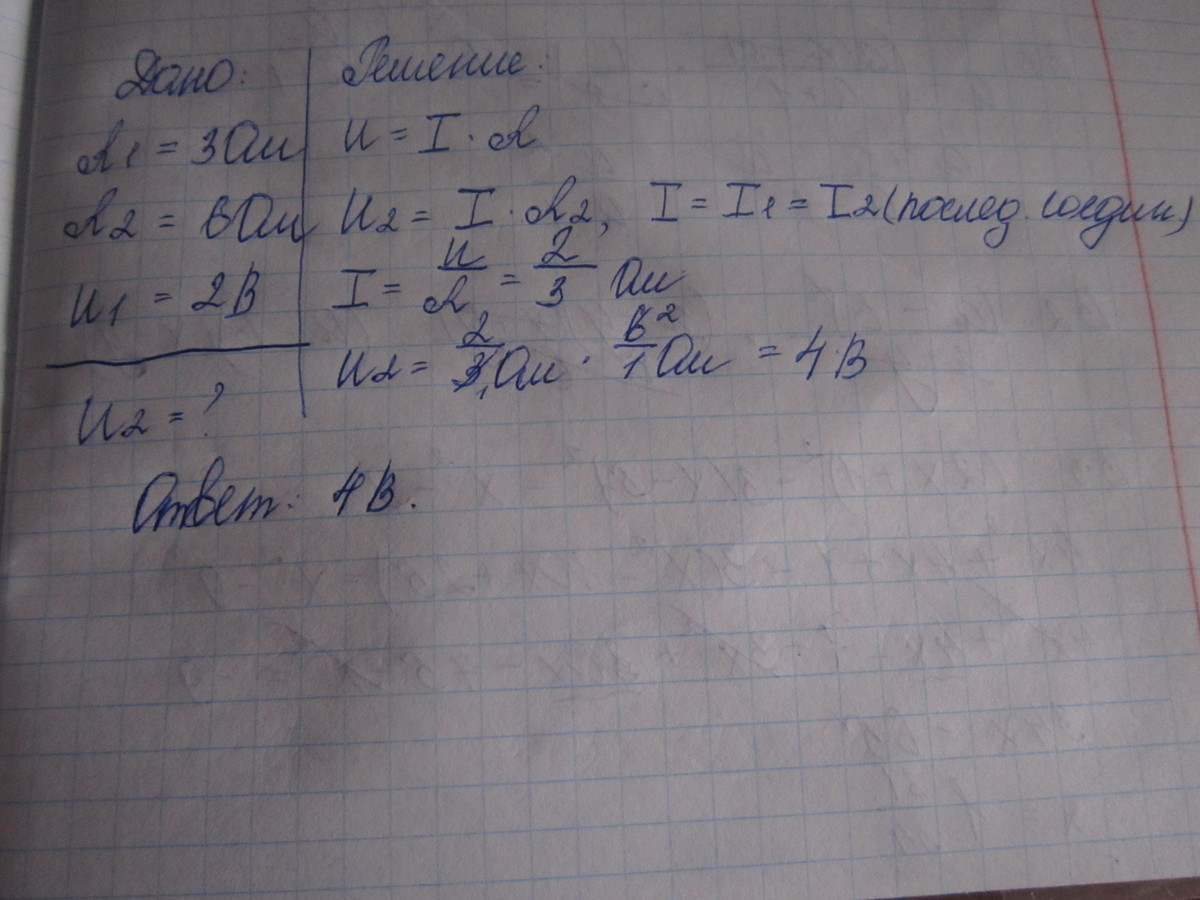 Дано:
R1 = 3Ом
R2 = 6Ом
U1 = 2В
U2 = ?
Решение:
U = I · R
U2 = I · R2, I = I1 = I2 (послед. соедин)
I = U/R = 2/3 Ом
U2 = 2/3 Ом · 6/1 Ом = 4В
Ответ: 4В.